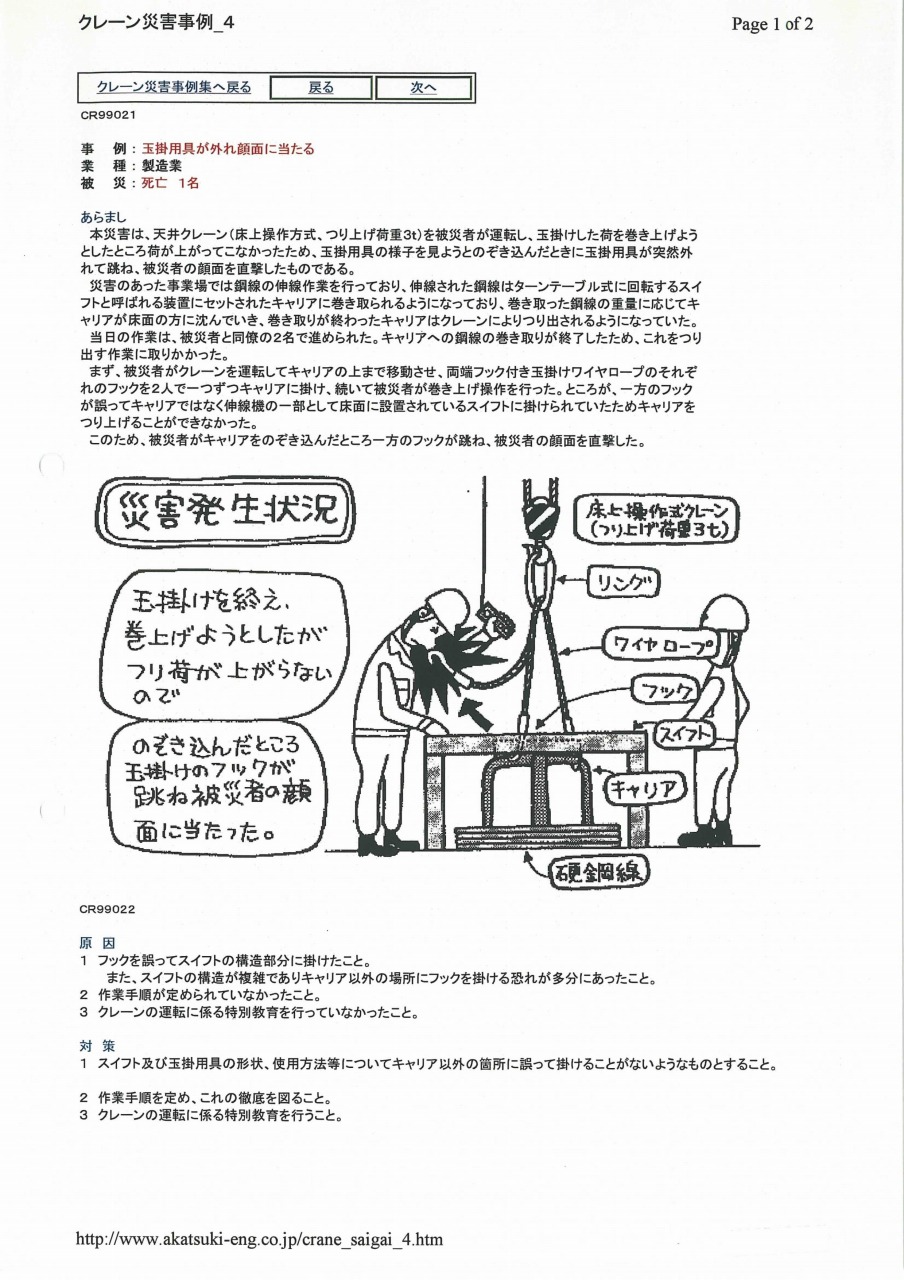 クレーン災害事例_4
Page 1 of 2
クレーン災害事例集へ戻る 戻る 次へ
CR99021
事 例：玉掛用具が外れ顔面に当たる
業 種：製造業
被 災：死亡 1名
あらまし
本災害は、天井クレーン（床上操作方式、つり上げ荷重3t）を被災者が運転し、玉掛けした荷を巻き上げよう
としたところ荷が上がってこなかったため、玉掛用具の様子を見ようとのぞき込んだときに玉掛用具が突然外
れて跳ね、被災者の顔面を直撃したものである。
災害のあった事業場では鋼線の伸線作業を行っており、伸線された鋼線はターンテーブル式に回転するスイ
フトと呼ばれる装置にセットされたキャリアに巻き取られるようになっており、巻き取った鋼線の重量に応じてキ
ャリアが床面の方に沈んでいき、巻き取りが終わったキャリアはクレーンによりつり出されるようになっていた。
当日の作業は、被災者と同僚の2名で進められた。キャリアへの鋼線の巻き取りが終了したため、これをつり
出す作業に取りかかった。
まず、被災者がクレーンを運転してキャリアの上まで移動させ、両端フック付き玉掛けワイヤロープのそれぞ
れのフックを2人で一つずつキャリアに掛け、続いて被災者が巻き上げ操作を行った。ところが、一方のフック
が誤ってキャリアではなく伸線機の一部として床面に設置されているスイフトに掛けられていたためキャリアを
つり上げることができなかった。
このため、被災者がキャリアをのぞき込んだところ一方のフックが跳ね、被災者の顔面を直撃した。
災害発生状況
床上操作式クレーン
（つり上げ荷重3t）
リング
玉掛けを終え、
巻上げようとしたが
フリ荷が上がらない
ので
ワイヤロープ
フック
スイフト
のぞき込んだところ
玉掛けのフックが
跳ね被災者の顔
面に当たった。
キャリア
硬鋼線
CR99022
原 因
1 フックを誤ってスイフトの構造部分に掛けたこと。
また、スイフトの構造が複雑でありキャリア以外の場所にフックを掛ける恐れが多分にあったこと。
2 作業手順が定められていなかったこと。
3 クレーンの運転に係る特別教育を行っていなかったこと。
対 策
1 スイフト及び玉掛用具の形状、使用方法等についてキャリア以外の箇所に誤って掛けることがないようなものとすること。
2 作業手順を定め、これの徹底を図ること。
3 クレーンの運転に係る特別教育を行うこと。
http://www.akatsuki-eng.co.jp/crane_saigai_4.htm